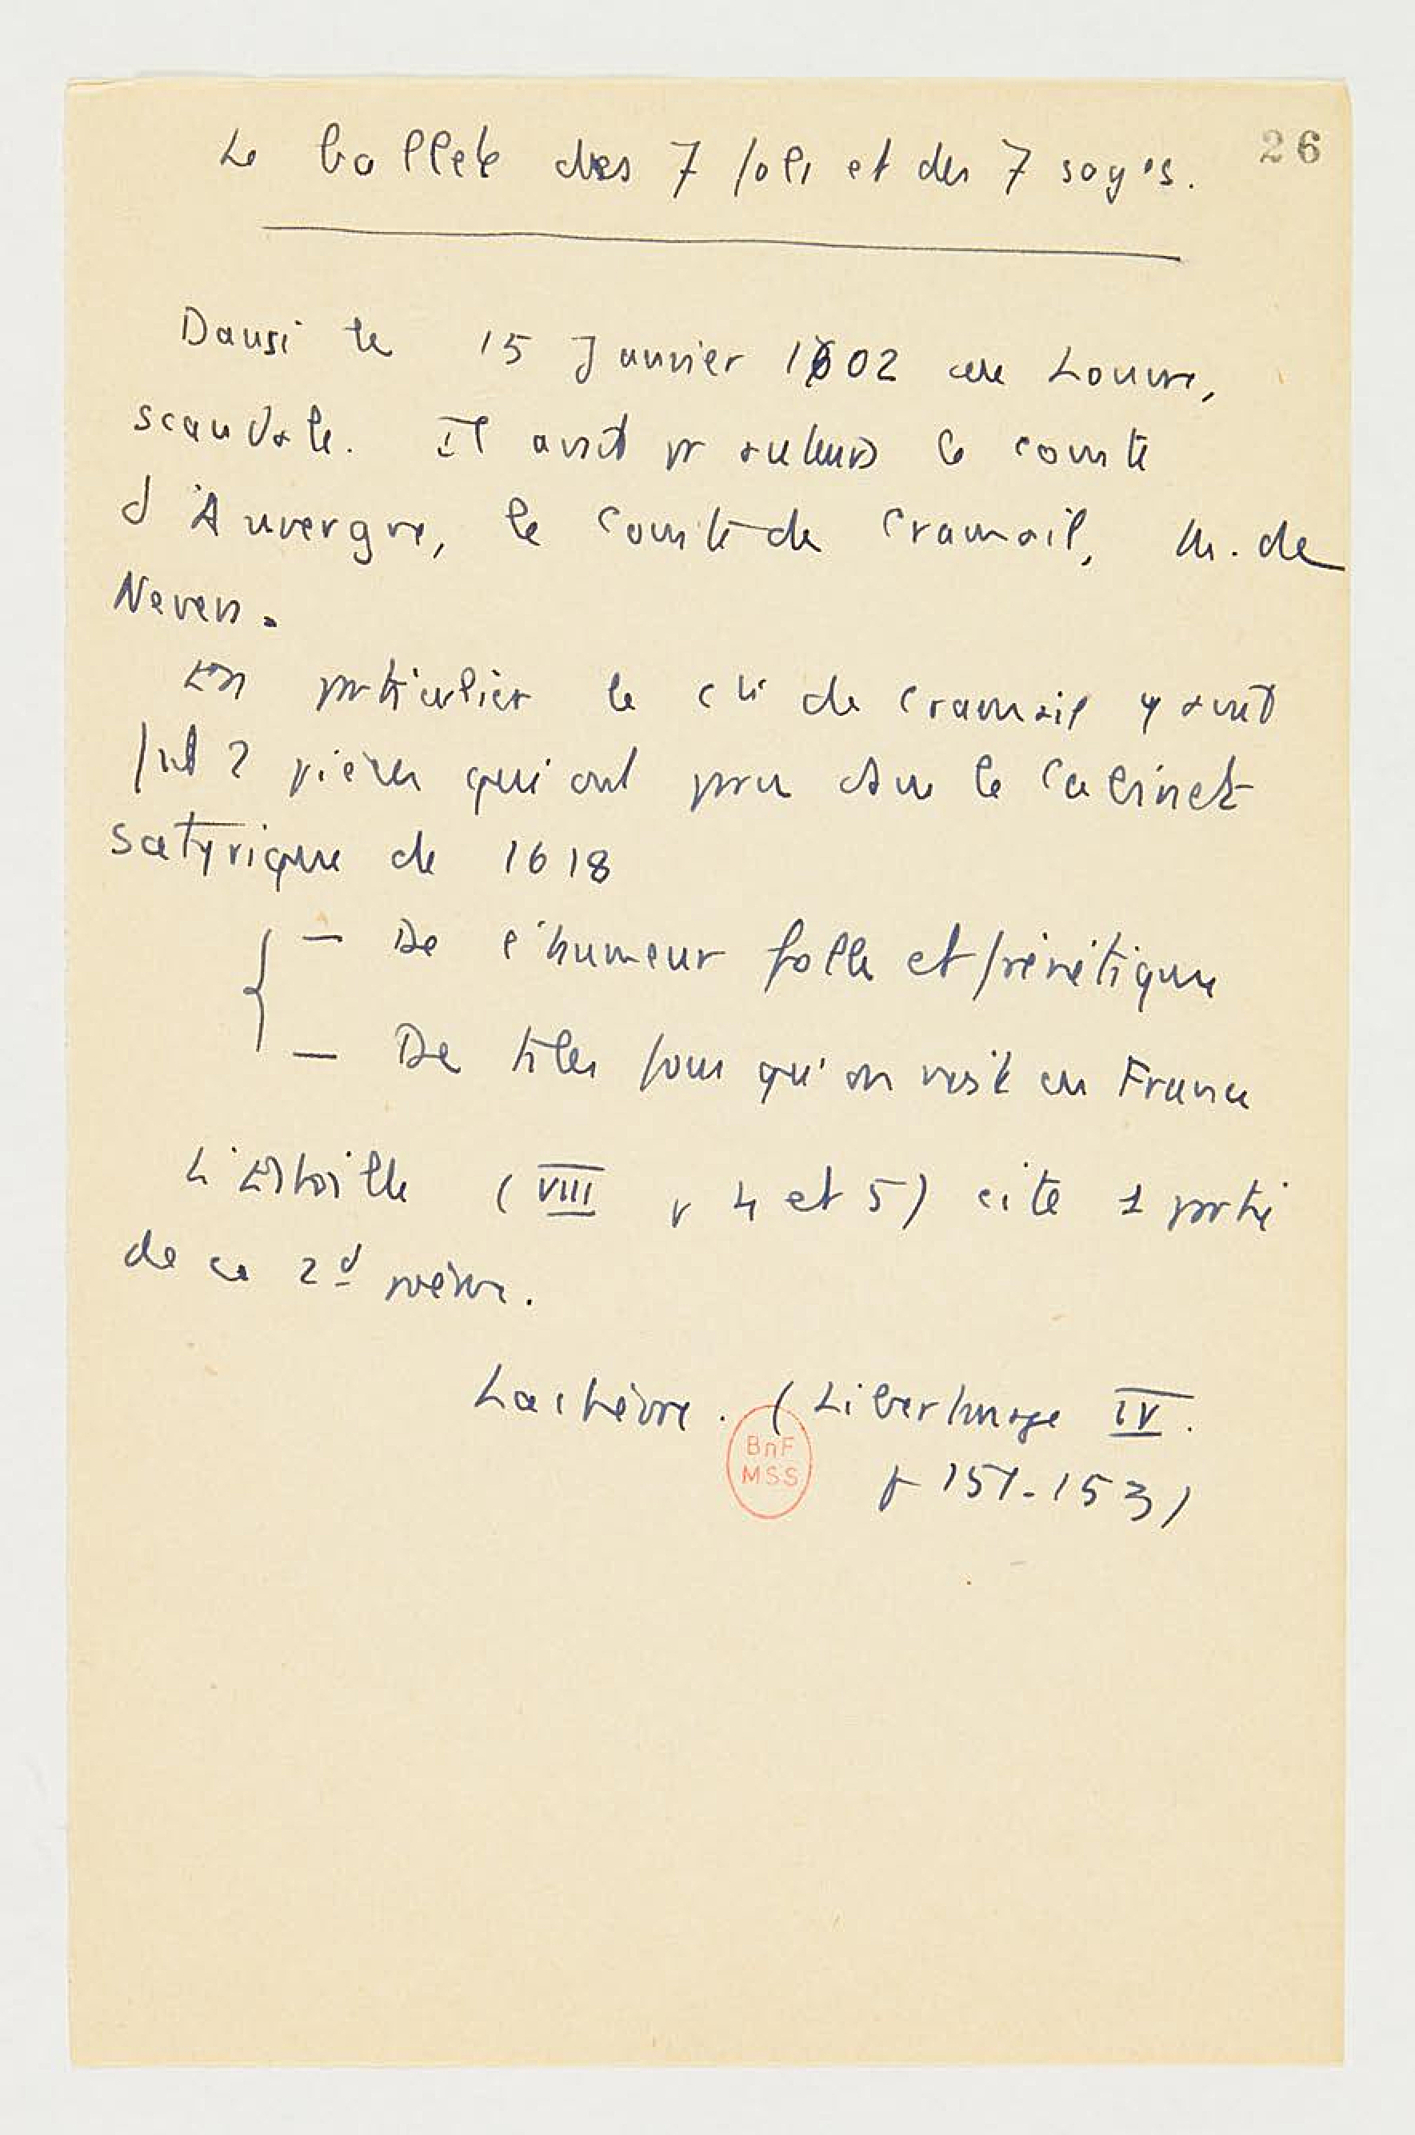 26
Le ballet des 7 fols et des 7 sages.
Dansé le 15 Janvier 1602 au Louvre,
scandale. Il avait pr auteurs le comte
d'Auvergne, le Comte de Cramail, M. de
Nevers.
En particulier le cte de Cramail y avait
fait 2 pièces qui ont paru dans le Cabinet
satyrique de 1618
— De l'humeur folle et frénétique
— De telles fous qu'on voit en France
L'Estoille (VIII p 4 et 5) cite 1 partie
de ce 2d
Lachèvre. (Libertinage IV.
p 151-153)
BnF
MSS